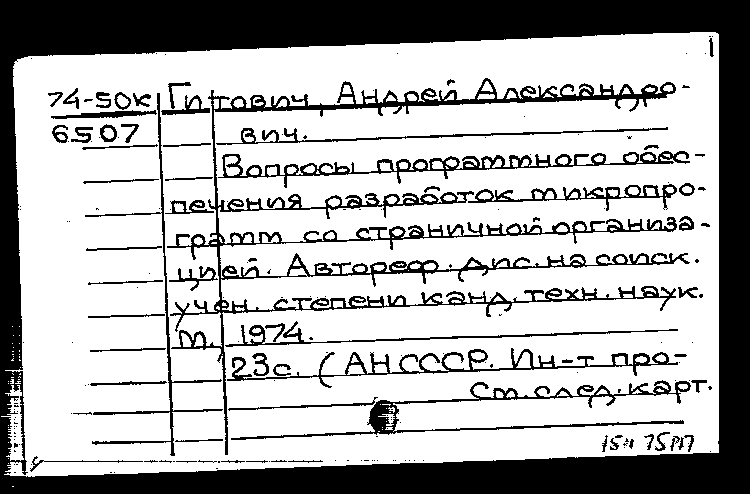 74-50к Гитович, Андрей Александро-
6507 вич.
Вопросы программного обес-
печения разработок микропро-
грамм со страничной организа-
цией. Автореф. дис. на соиск.
учен. степени канд. техн. наук.
М., 1974.
23с. (АН СССР. Ин-т про-
См. след. карт.